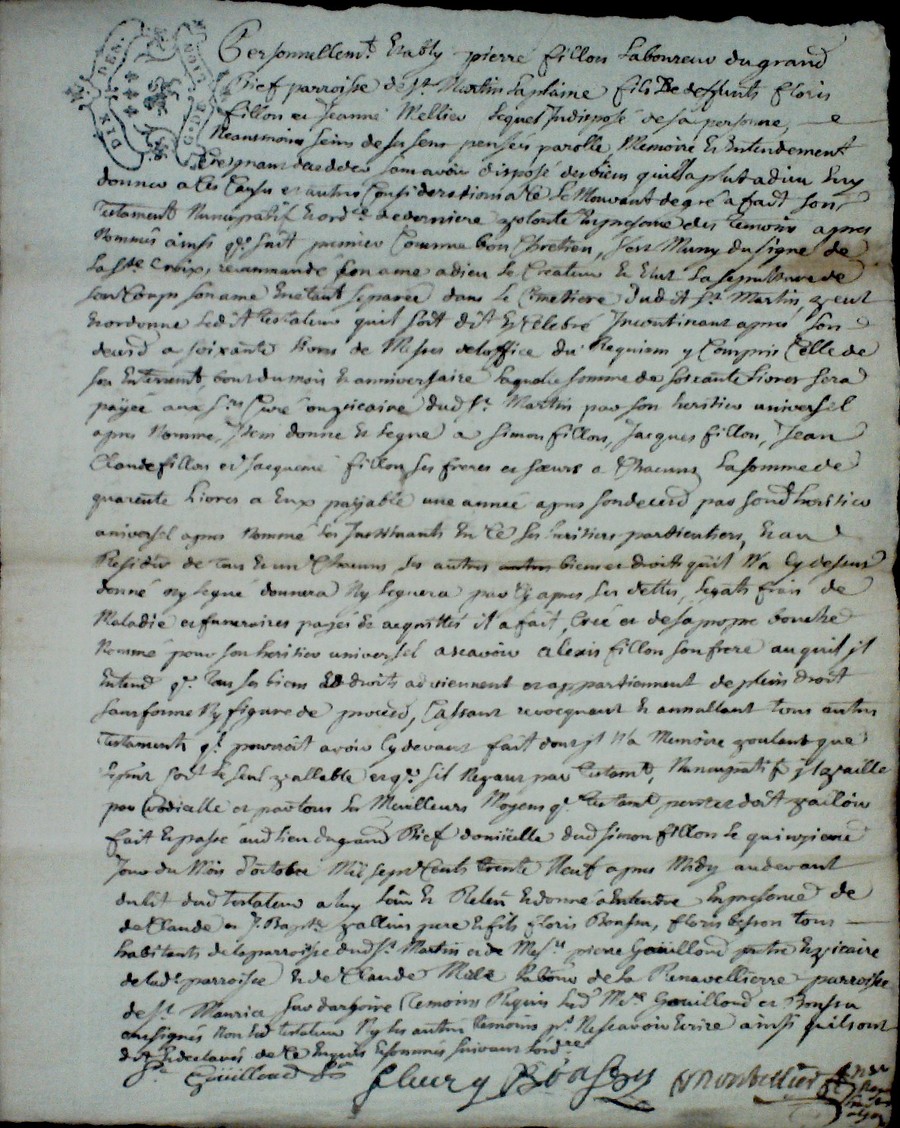 DIX DEN.
G. DE LION
Personnellemt. Estably pierre fillon Laboureur du grand
Rief parroisse de St. Martin La plaine fils De deffunts floris
fillon et Jeanne Mellier Lequel Indisposé de sa personne, e
Neantmoins seins de ses sens pensées parolle, Memoire Et Entendement
Craignant deceder sans avoir disposé des biens quil a plut a dieu Luy
donner a Ces Causes et autres Considerations a Ce Le Mouvant de gré a fait son
Testament Nuncupatif Et ordce. de derniere volonté En presence des temoins apres
Nommés ainsi q. suit premier Comme bon Chretien, s'est Muny du signe de
La Ste. Croix, recommandé son ame a dieu Le Createur Et Elut La sepulture de
son Corps son ame En etant separée dans le Cimetiere dudit St. Martin, veut
Et ordonne Ledit testateur quil soit dit Et Celebré Incontinant apres son
deced a soixante livres de Messes de l'office du Requiem y Compris Celle de
son Enterremt, bout du mois Et anniversaire Laquelle somme de soixante Livres sera
payée aux Srs. Curé ou vicaire dud St. Martin par son heritier universel
apres Nommé, Item donne Et Legue a simon fillon, Jacques fillon, Jean
Claude fillon et Jacqueme fillon ses freres et sœurs a Chacuns La somme de
quarente Livres a Eux payable une année apres son deced par sond heritier
universel apres Nommé Les Instituants En Ce ses heritiers particuliers, Et au
Residu de tous Et un Chacuns ses autres biens et droits quil N'a Cy dessus
donné ny Legué donnera Ny Leguera par Cy apres ses dettes, Legats frais de
Maladie et funeraires payés Et acquittés il a fait, Créé et de sa propre bouche
Nommé pour son heritier universel a scavoir alexis fillon son frere auquel il
Entend q. tous ses biens Et droits adviennent et appartiennent de plein droit
sans forme Ny figure de proced, Cassant revocquant Et annullant tous autres
testaments ql. pourroit avoir Cy devant fait dont il N'a Memoire voulant que
soit Le seul vallable et q. s'il Ne vaut par testamt, Nuncupatif il vaille
par Codicille et par tous les Meilleurs Moyens q. testamt peut et doit valoir
fait Et passé aud lieu du grand Rief domicille dud simon fillon Le quinzieme
Jour du Mois d'octobre Mil sept Cents trente Neuf apres Midy au devant
du lit dud testateur a luy Leu Et Releu Et donné a Entendre En presence de
de Claude et J. Bapte. vallin pere Et fils floris Bonssu, floris besson tous
habitants de la parroisse dud St. Martin et de Messe. pierre Goüilloud pretre Et vicaire
de lade parroisse Et de Claude Mile Labour de la Renavellierre parroisse
de St. Maurice sur dargoire temoins Requis Led Mre. Goüilloud et Bonssu
ont signés Non Led testateur Ny les autres temoins pr. Ne scavoir Ecrire ainsi quils ont
dit Et declarés de Ce Enquis Et sommés suivant Lord.re
Goüilloud
fleury